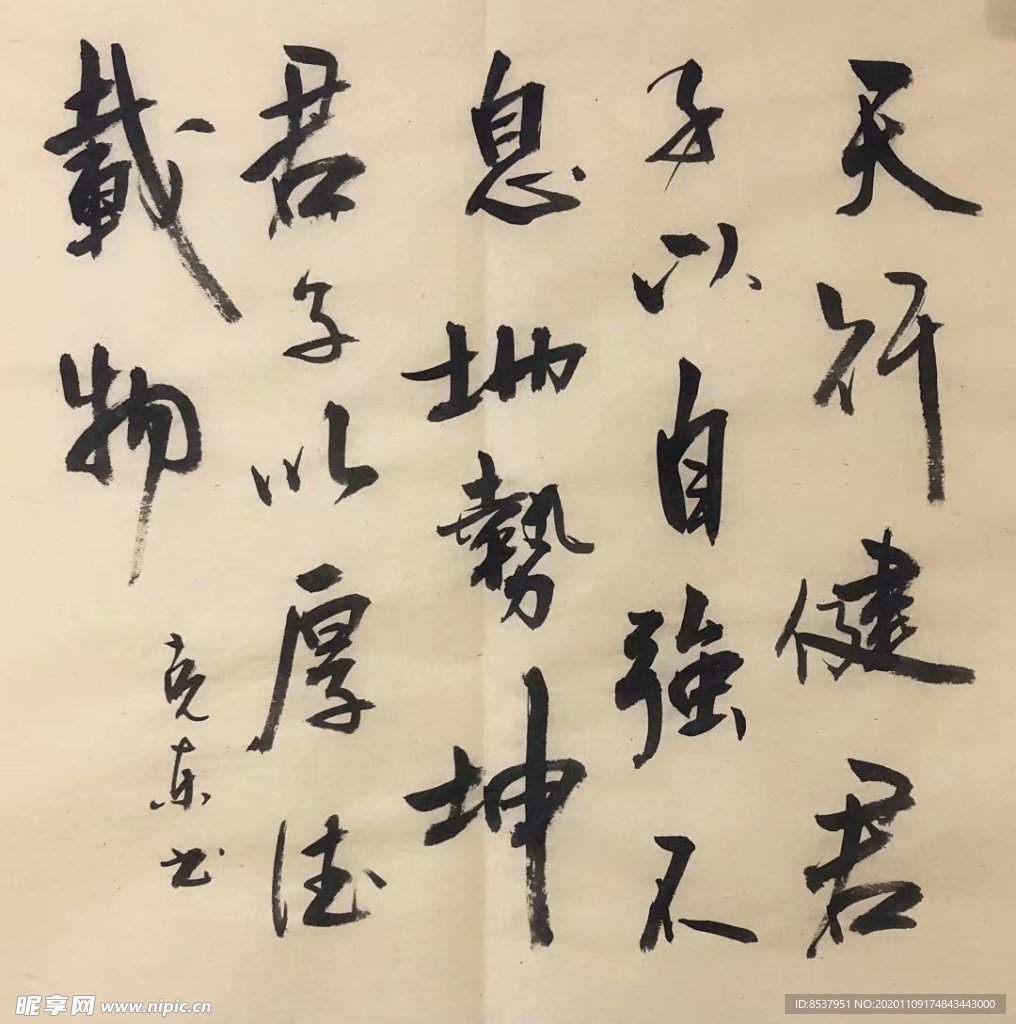 天行健君
子以自強不
息地勢坤
君子以厚德
載物
克东书
昵享网 www.nipic.cn
ID:8537951 NO:20201109174843443000